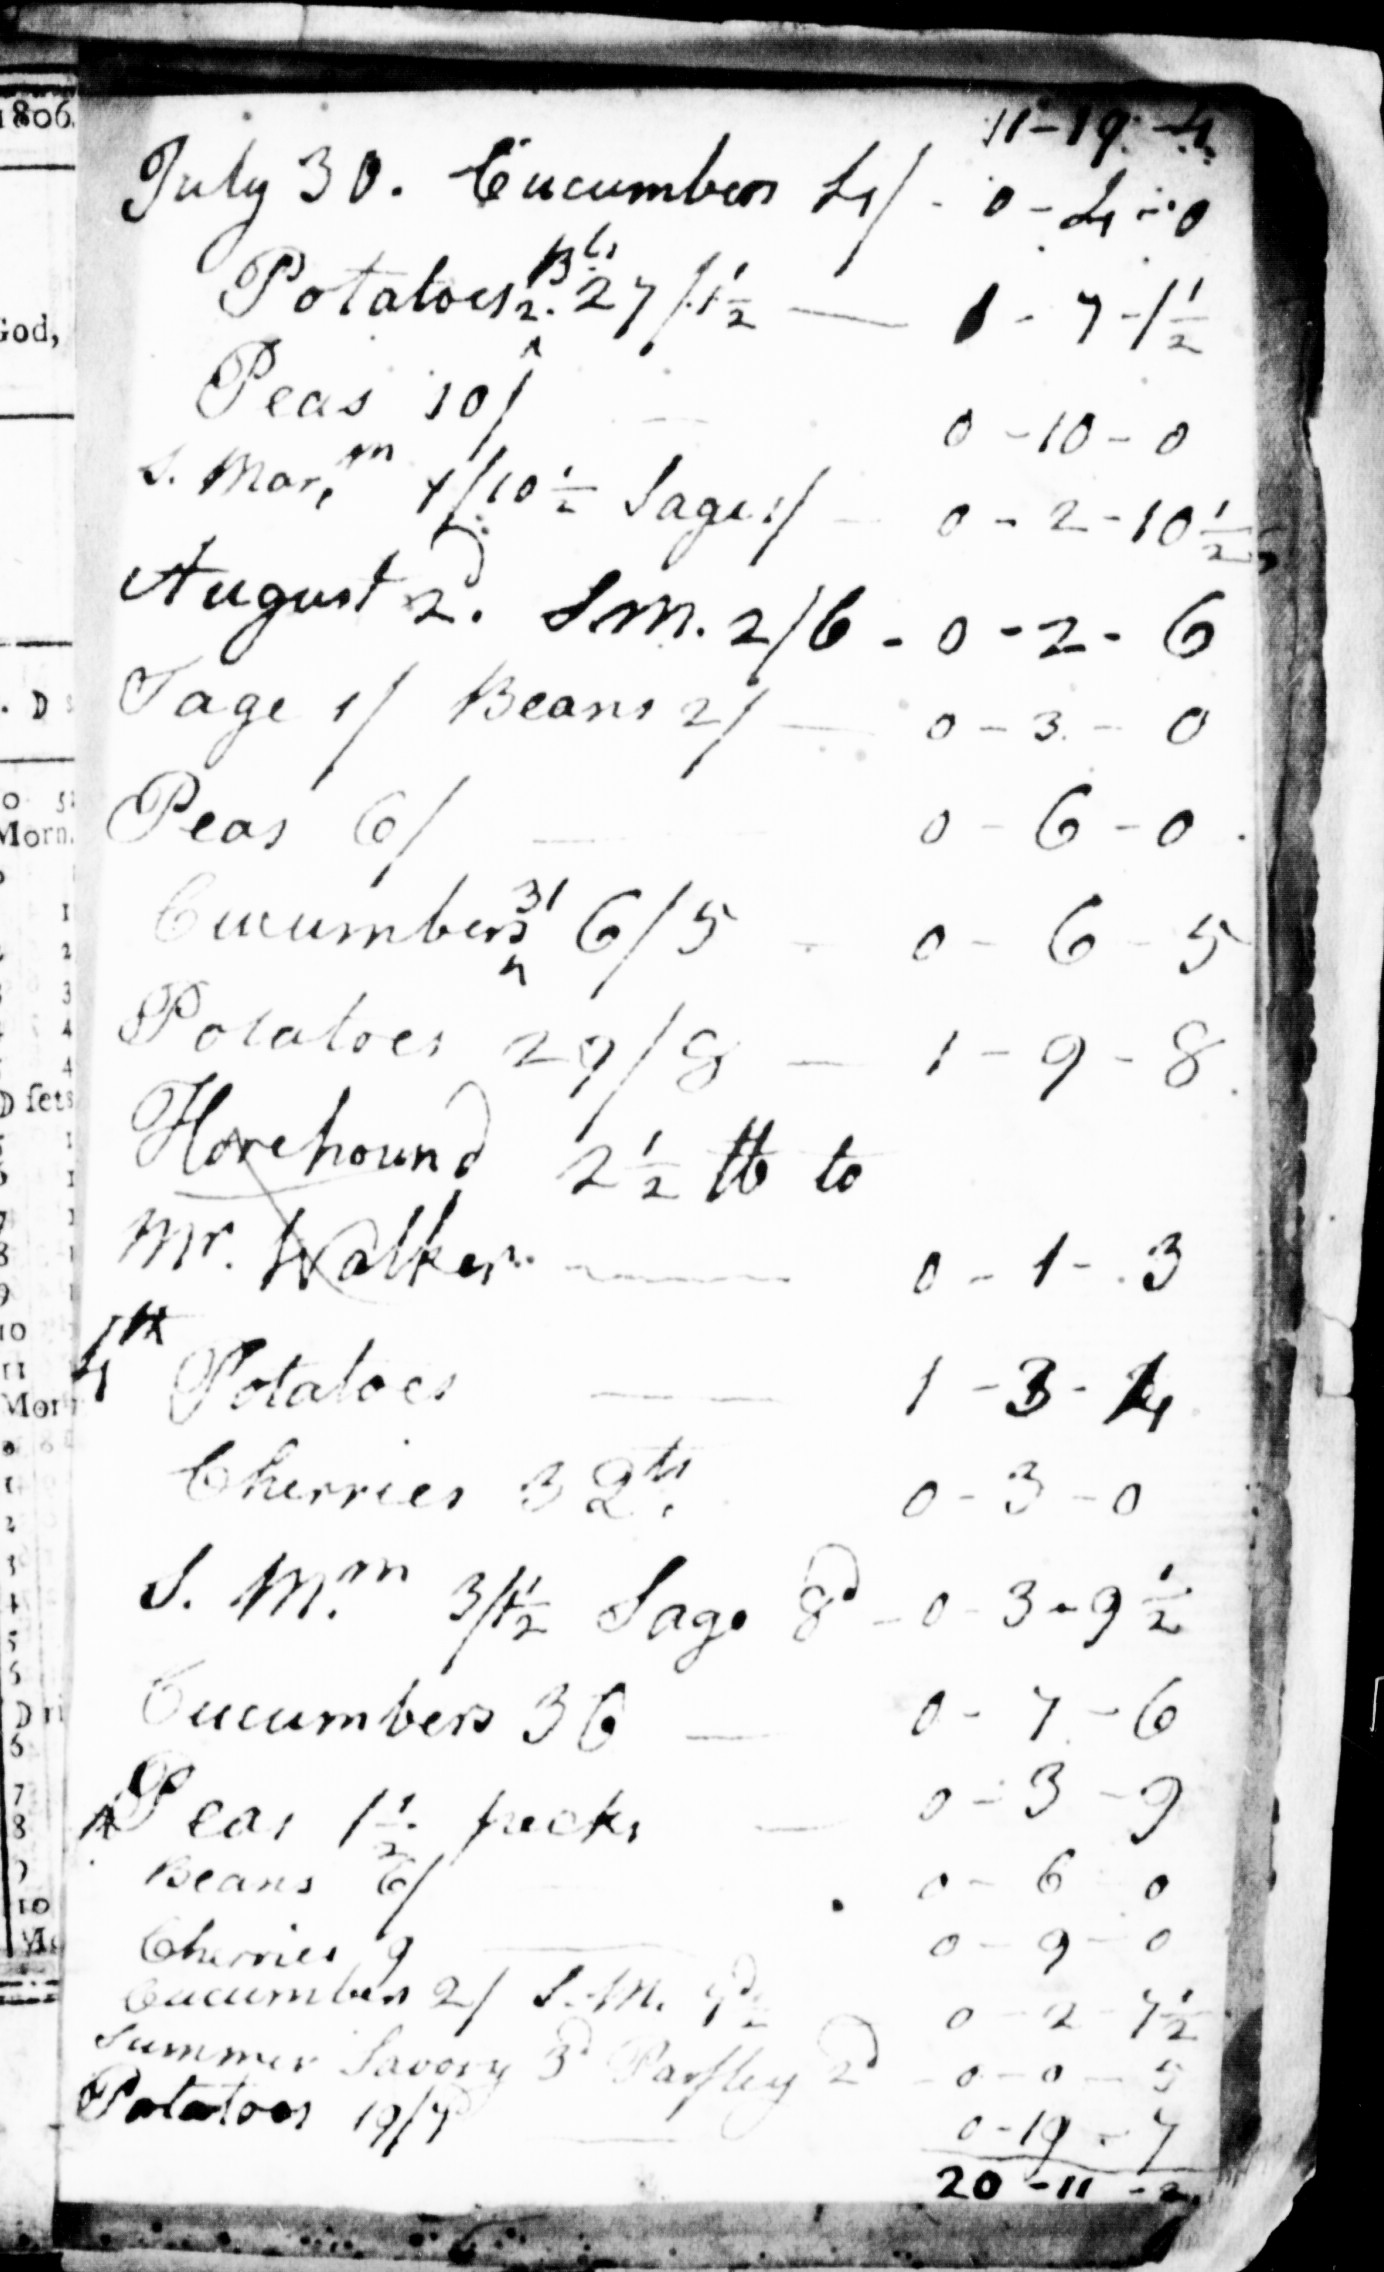 1806.
God,
. D s
Morn.
D sets
11-19-4
July 30. Cucumbers 4/ - 0-4-0
Potatoes 2. Bls 27/1½ — 1-7-1½
Peas 10/ — 0-10-0
S. Mar.m 1/10½ Sage 1/ — 0-2-10½
August 2d. S.M. 2/6 - 0-2-6
Sage 1/ Beans 2/ — 0-3-0
Peas 6/ — 0-6-0
Cucumbers 31 6/5 - 0-6-5
Potatoes 29/8 — 1-9-8
Horehound 2½ lb to
Mr. Walker — 0-1-3
4th Potatoes — 1-3-4
Cherries 3 Qts. 0-3-0
S. M.m 3/1½ Sage 8d - 0-3-9½
Cucumbers 36 — 0-7-6
Peas 1½ pecks — 0-3-9
Beans 6/ 0-6-0
Cherries 9 — 0-9-0
Cucumbers 2/ S.M. 7d½ 0-2-7½
Summer Savory 3d Parsley 2d - 0-0-5
Potatoes 19/7 — 0-19-7
20-11-2